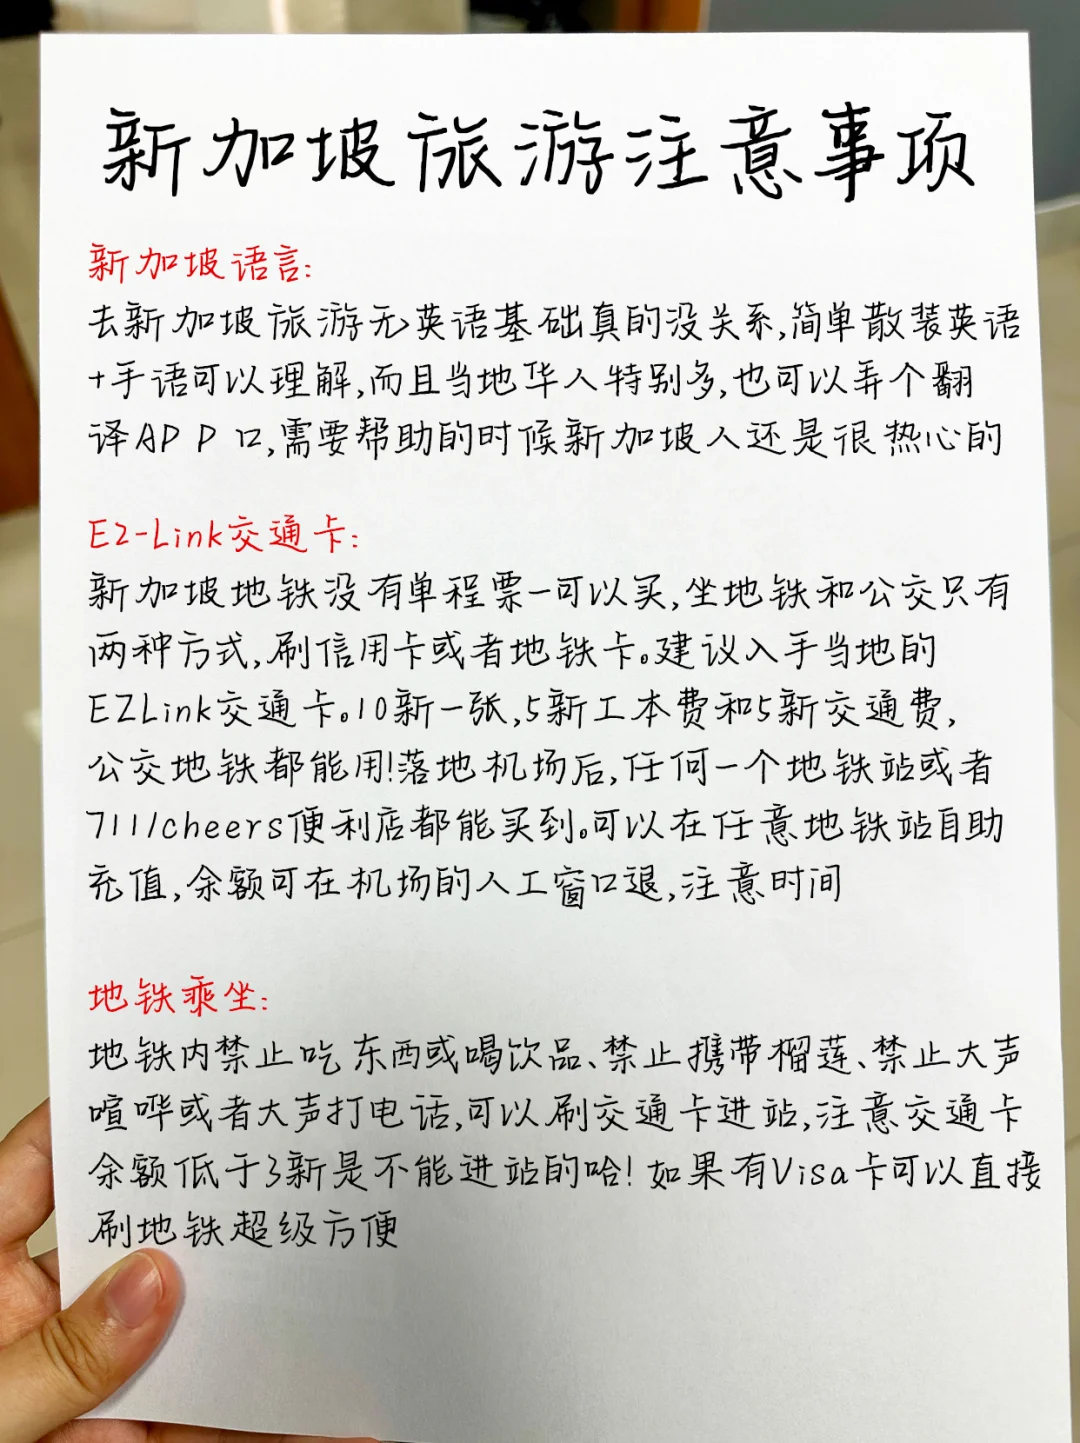 新加坡旅游注意事项
新加坡语言:
去新加坡旅游无英语基础真的没关系,简单散装英语
+手语可以理解,而且当地华人特别多,也可以弄个翻
译APP口,需要帮助的时候新加坡人还是很热心的
EZ-Link交通卡:
新加坡地铁没有单程票一可以买,坐地铁和公交只有
两种方式,刷信用卡或者地铁卡。建议入手当地的
EZLink交通卡。10新一张,5新工本费和5新交通费,
公交地铁都能用!落地机场后,任何一个地铁站或者
711/cheers便利店都能买到。可以在任意地铁站自助
充值,余额可在机场的人工窗口退,注意时间
地铁乘坐:
地铁内禁止吃东西或喝饮品、禁止携带榴莲、禁止大声
喧哗或者大声打电话,可以刷交通卡进站,注意交通卡
余额低于3新是不能进站的哈!如果有Visa卡可以直接
刷地铁超级方便